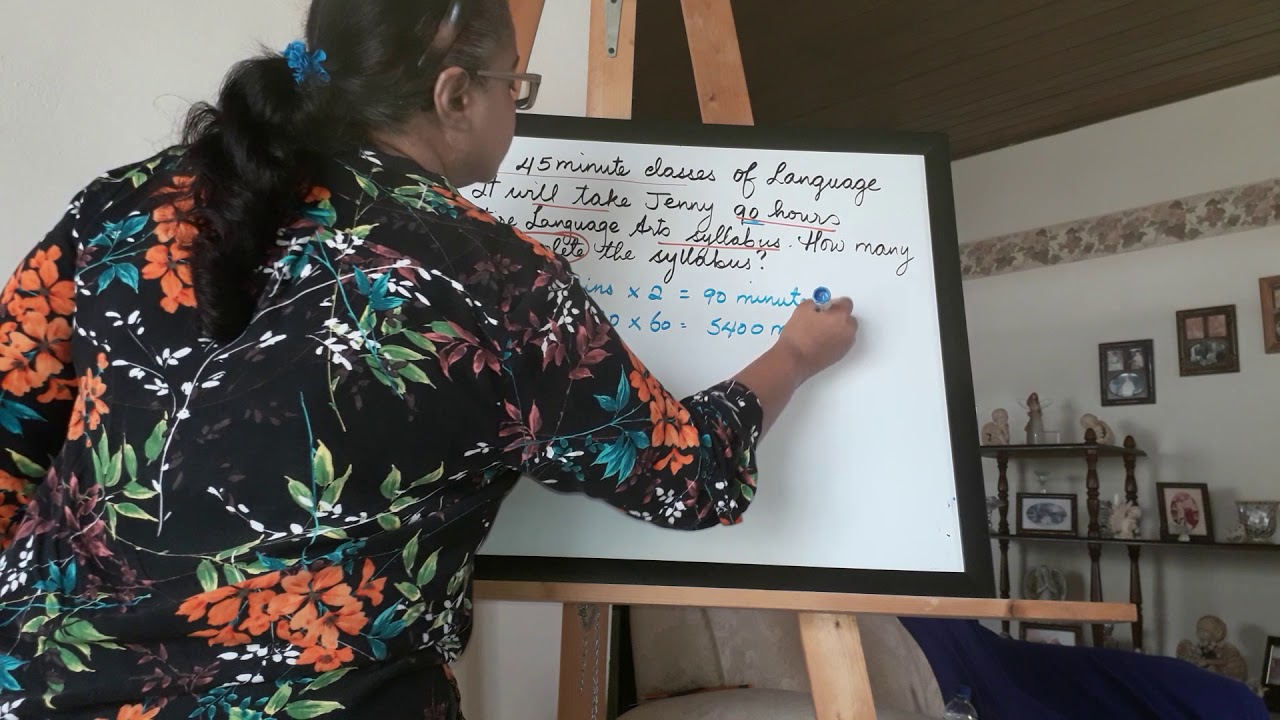 45 minute classes of Language
It will take Jenny 90 hours
Language Arts syllabus. How many
the syllabus?
x 2 = 90
x 60 = 5400